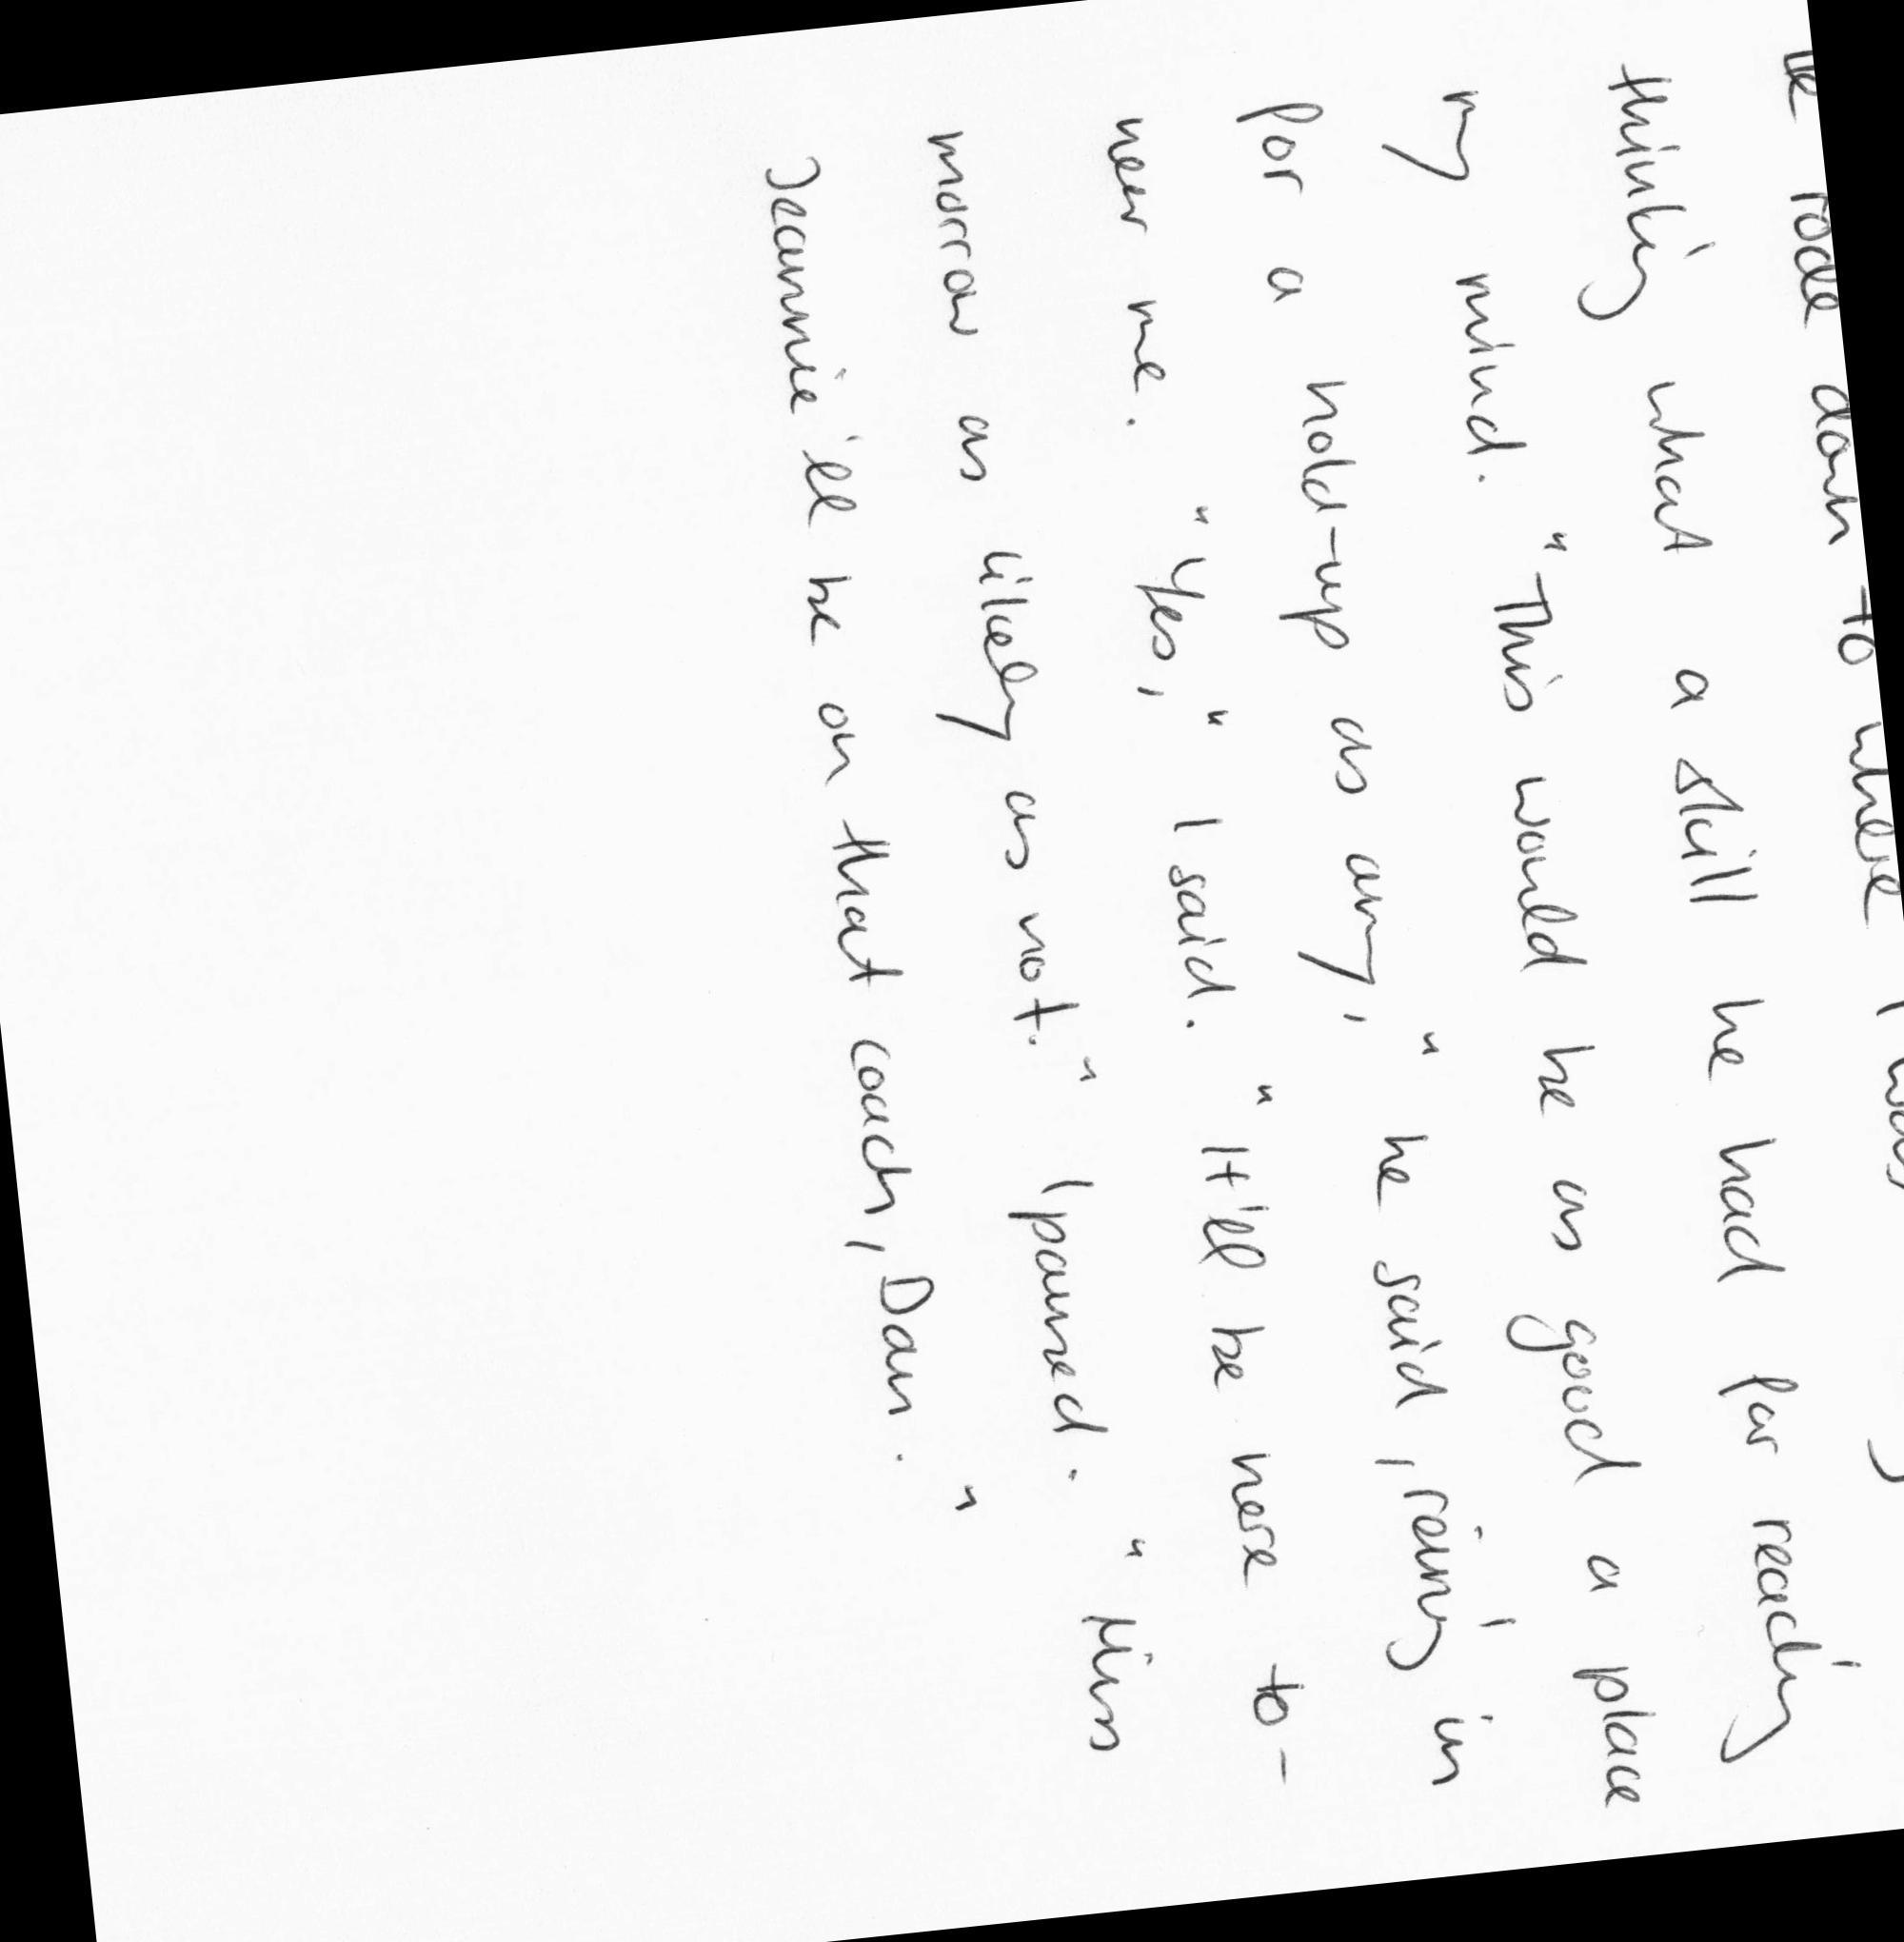 He rode down to where I was
thinking what a skill he had for reading
my mind. "This would be as good a place
for a hold-up as any," he said, reining in
near me. "Yes," I said. "It'll be here to-
morrow as likely as not." I paused. "Miss
Jeannie'll be on that coach, Dan."